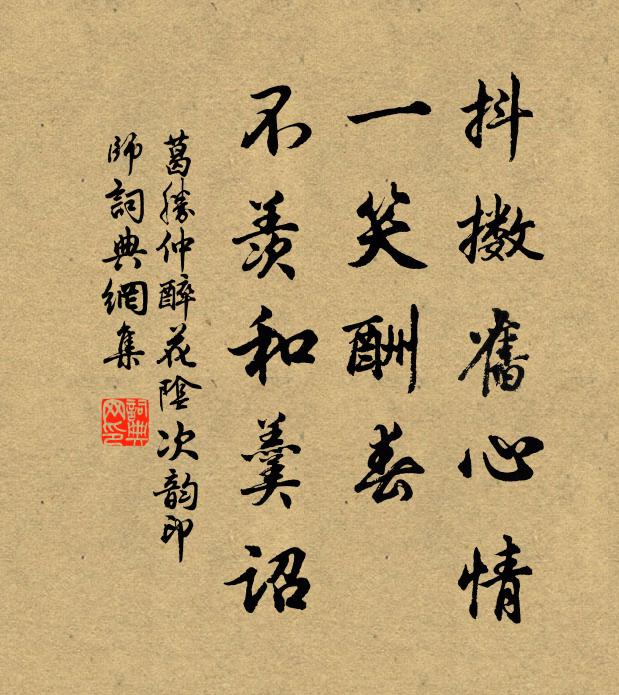 抖擻舊心情
一笑酬春
不羨和羹詔
葛勝仲醉花陰次韵印
師詞典網集
詞典网印